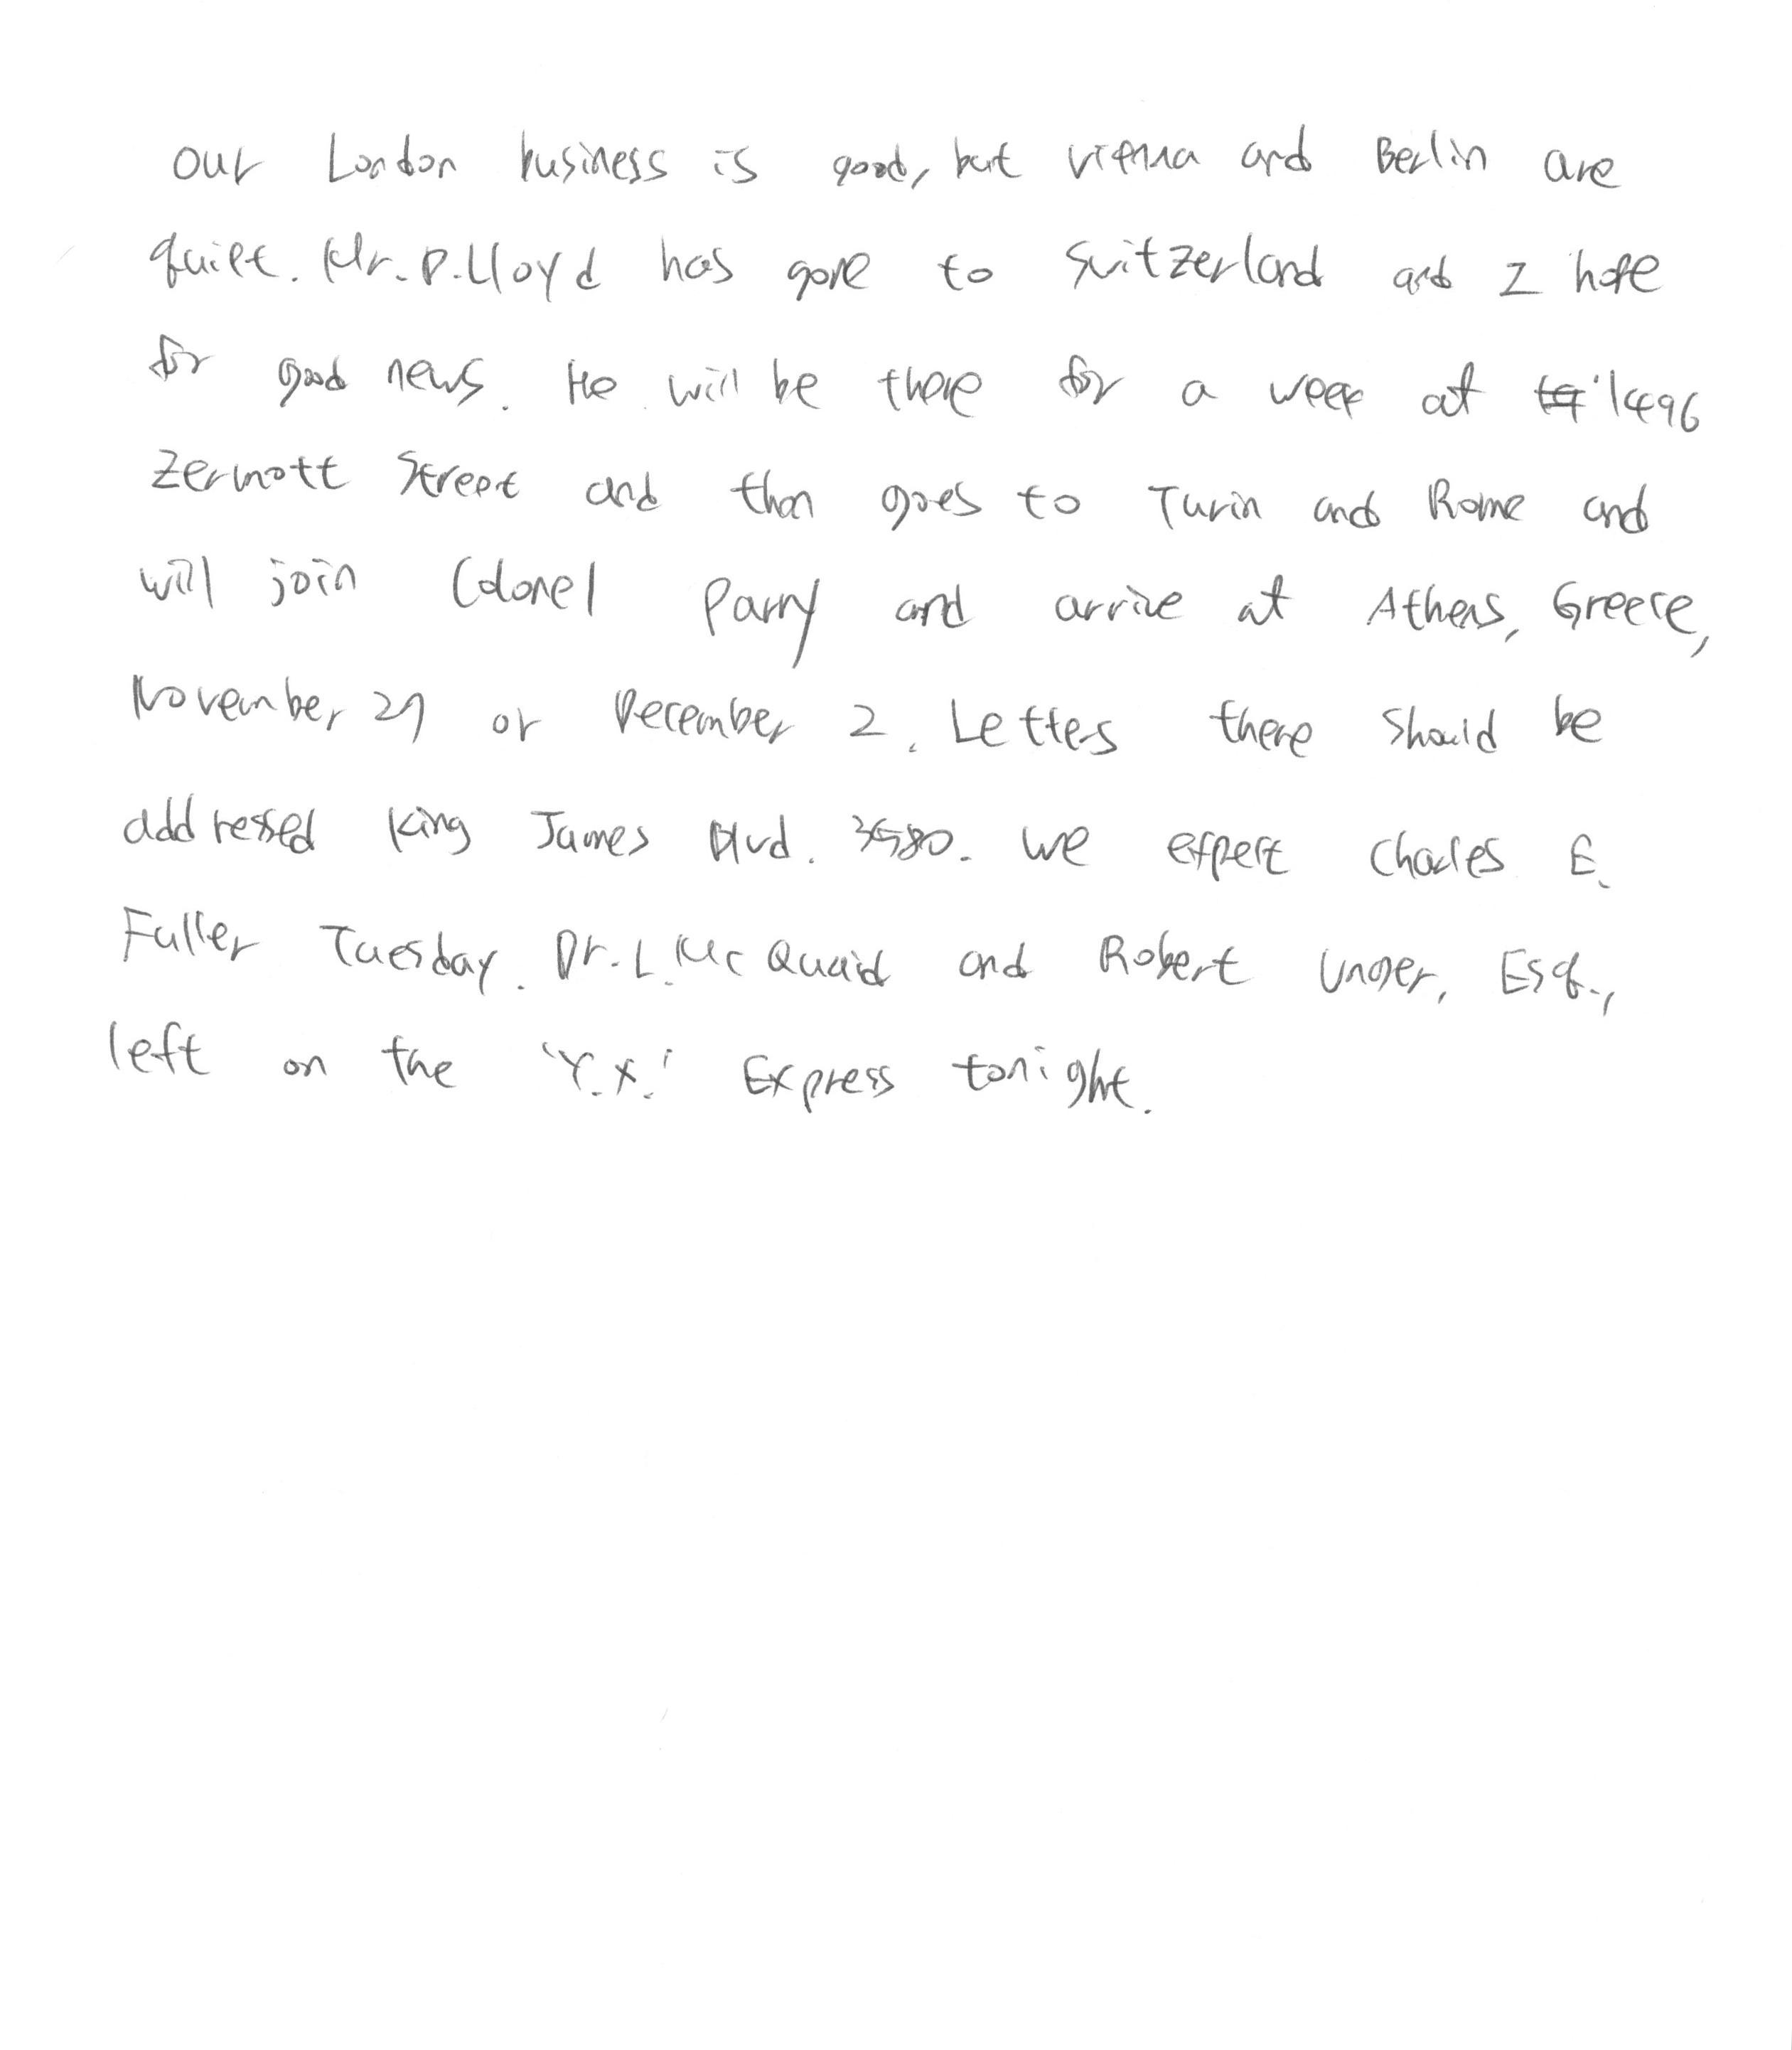 our London business is good, but vienna and Berlin are
quiet. Mr. D. Lloyd has gone to Switzerland and I hope
for good news. He will be there for a week at 1496
Zermott Street and then goes to Turin and Rome and
will join Colonel Parry and arrive at Athens, Greece,
November 29 or December 2. Letters there should be
addressed King James Blvd. 3580. We expect Charles E.
Fuller Tuesday. Dr. L. McQuaid and Robert Unger, Esq.,
left on the 'Y.X.' Express tonight.